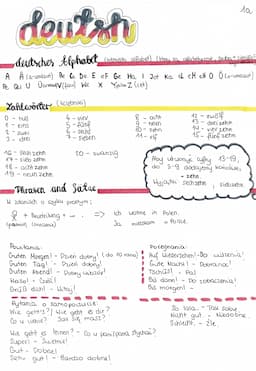 1a
deutsch
deutsches Alphabet
A Ä Bb Cc Dd Ee F Gg Hh I Jj Kk Ll M N O Ö
Pp Qq U W X Y Z
Zahlwörter (liczebniki)
0 - null
1 - eins
2 - zwei
3 - drei
4 - vier
5 - fünf
6 - sechs
7 - sieben
8 - acht
9 - neun
10 - zehn
11 - elf
12 - zwölf
13 - dreizehn
14 - vierzehn
15 - fünfzehn
16 - sechzehn
17 - siebzehn
18 - achtzehn
19 - neunzehn
20 - zwanzig
Aby utworzyć cyfry 13-19,
do 3-9 dodajemy końcówkę
- zehn.
Wyjątki: sechzehn, siebzehn
Phrasen und Sätze
W zdaniach o szyku prostym:
=> Ich wohne in Polen.
Ja mieszkam w Polsce.
Powitania:
Guten Morgen! - Dzień dobry! (do 10 rano)
Guten Tag! - Dzień dobry!
Guten Abend! - Dobry wieczór!
Hallo! - Cześć!
Grüß dich! - Witaj!
Pożegnania:
Auf Wiedersehen! - Do widzenia!
Gute Nacht! - Dobranoc!
Tschüs! - Pa!
Bis dann! - Do zobaczenia!
Bis morgen! -
Pytania o samopoczucie:
Wie geht's? / Wie geht es dir?
Co u ciebie? Jak się masz?
Wie geht es Ihnen? - Co u pani/pana słychać?
Super! - Świetnie!
Gut - Dobrze!
Sehr gut! - Bardzo dobrze!
So lala - Tak sobie
Nicht gut - Niedobrze
Schlecht - Źle